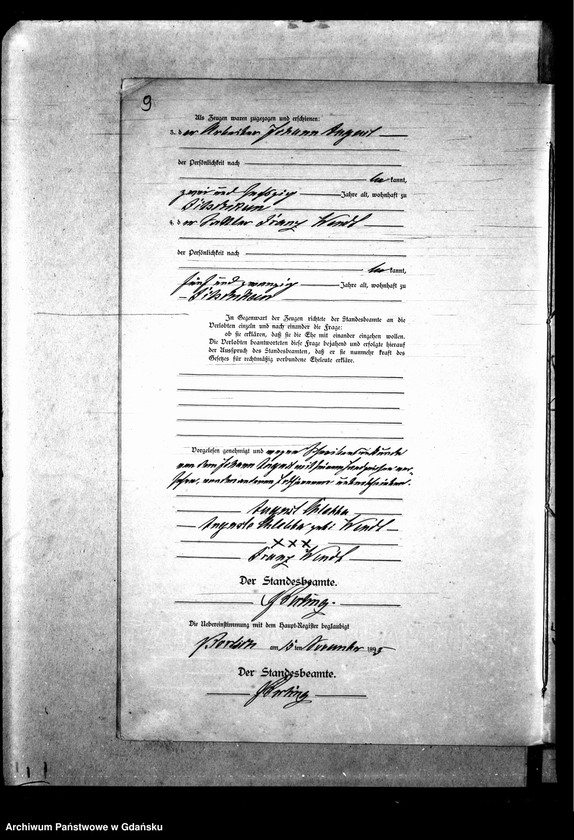 9
Als Zeugen waren zugezogen und erschienen:
3. der Arbeiter Johann August
der Persönlichkeit nach
be kannt,
zwei und sechszig Jahre alt, wohnhaft zu
4. der Sattler Franz Wendt
der Persönlichkeit nach
be kannt,
fünf und zwanzig Jahre alt, wohnhaft zu
In Gegenwart der Zeugen richtete der Standesbeamte an die
Verlobten einzeln und nach einander die Frage:
ob sie erklären, daß sie die Ehe mit einander eingehen wollen.
Die Verlobten beantworteten diese Frage bejahend und erfolgte hierauf
der Ausspruch des Standesbeamten, daß er sie nunmehr kraft des
Gesetzes für rechtmäßig verbundene Eheleute erkläre.
Vorgelesen genehmigt und wegen Schreibensunkunde
von dem Johann August mit seinem Handzeichen ver-
sehen, von den anderen Erschienenen unterschrieben.
August
Auguste geb. Wendt
XXX
Franz Wendt
Der Standesbeamte.
Die Uebereinstimmung mit dem Haupt-Register beglaubigt
am 15 ten November 189
Der Standesbeamte.
Archiwum Państwowe w Gdańsku